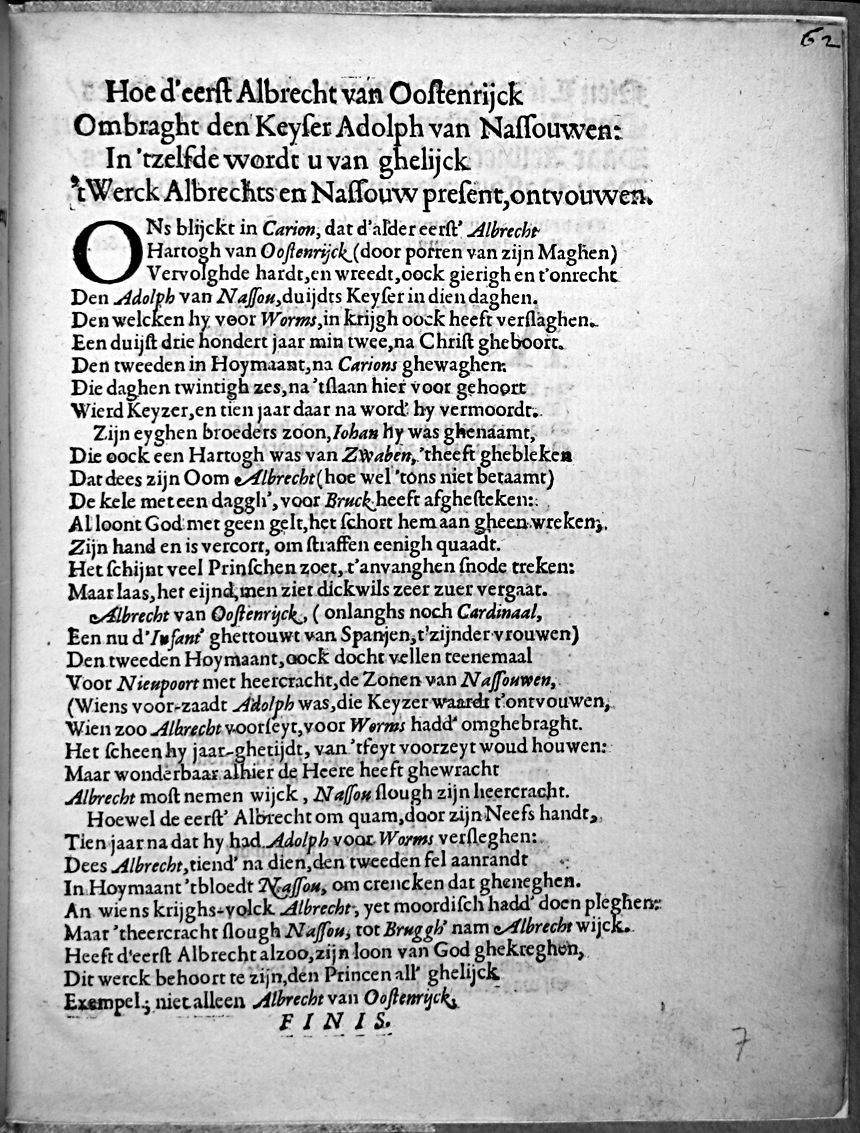 62
Hoe d'eerſt Albrecht van Ooſtenrijck
Ombraght den Keyſer Adolph van Naſſouwen:
In 'tzelfde wordt u van ghelijck
'tWerck Albrechts en Naſſouw preſent, ontvouwen.
ONs blijckt in Carion, dat d'alder eerſt' Albrecht
Hartogh van Ooſtenrijck (door porren van zijn Maghen)
Vervolghde hardt, en wreedt, oock gierigh en t'onrecht
Den Adolph van Naſſou, duijdts Keyſer in dien daghen.
Den welcken hy voor Worms, in krijgh oock heeft verſlaghen.
Een duijſt drie hondert jaar min twee, na Chriſt gheboort.
Den tweeden in Hoymaant, na Carions ghewaghen:
Die daghen twintigh zes, na 'tſlaan hier voor gehoort
Wierd Keyzer, en tien jaar daar na word' hy vermoordt.
Zijn eyghen broeders zoon, Iohan hy was ghenaamt,
Die oock een Hartogh was van Zwaben, 'theeft ghebleken
Dat dees zijn Oom Albrecht (hoe wel 'tons niet betaamt)
De kele met een daggh', voor Bruck heeft afgheſteken:
Al loont God met geen gelt, het ſchort hem aan gheen wreken,
Zijn hand en is vercort, om ſtraffen eenigh quaadt.
Het ſchijnt veel Prinſchen zoet, t'anvanghen ſnode treken:
Maar laas, het eijnd, men ziet dickwils zeer zuer vergaat.
Albrecht van Ooſtenrijck, ( onlanghs noch Cardinaal,
Een nu d'Infant' ghettouwt van Spanjen, t'zijnder vrouwen)
Den tweeden Hoymaant, oock docht vellen teenemaal
Voor Nieupoort met heercracht, de Zonen van Naſſouwen,
(Wiens voor-zaadt Adolph was, die Keyzer waardt t'ontvouwen,
Wien zoo Albrecht voorſeyt, voor Worms hadd' omghebraght.
Het ſcheen hy jaar-ghetijdt, van 'tfeyt voorzeyt woud houwen:
Maar wonderbaar alhier de Heere heeft ghewracht
Albrecht moſt nemen wijck, Naſſou ſlough zijn heercracht.
Hoewel de eerſt' Albrecht om quam, door zijn Neefs handt,
Tien jaar na dat hy had Adolph voor Worms verſleghen:
Dees Albrecht, tiend' na dien, den tweeden fel aanrandt
In Hoymaant 'tbloedt Naſſou, om crencken dat gheneghen.
An wiens krijghs-volck Albrecht, yet moordiſch hadd' doen pleghen:
Maar 'theercracht ſlough Naſſou, tot Bruggh' nam Albrecht wijck.
Heeft d'eerſt Albrecht alzoo, zijn loon van God ghekreghen,
Dit werck behoort te zijn, den Princen all' ghelijck
Exempel; niet alleen Albrecht van Ooſtenrijck.
FINIS.
7